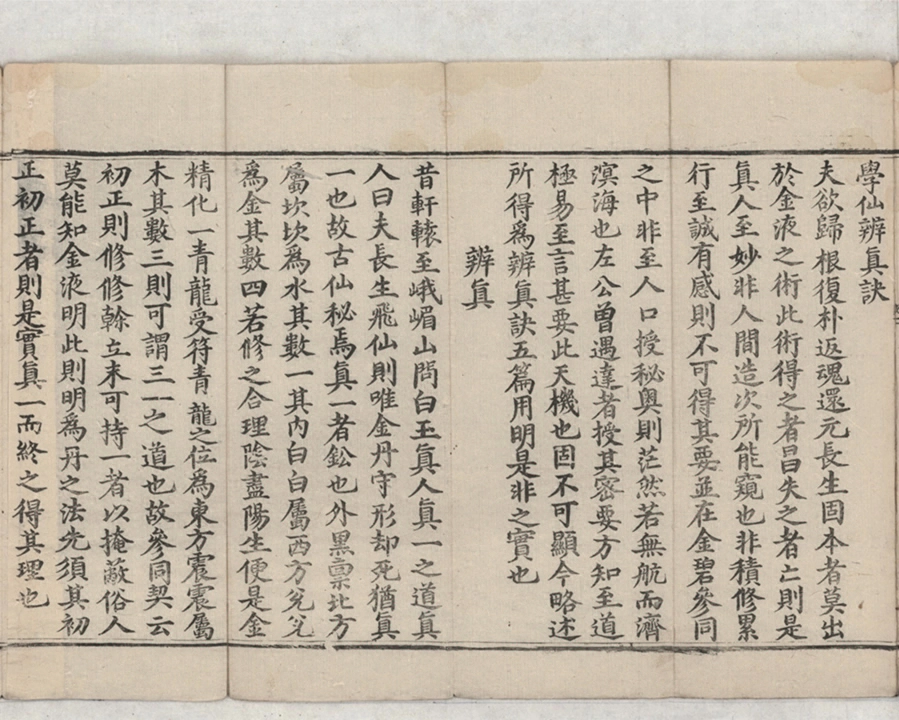 學仙辨眞訣
夫欲歸根復朴返魂還元長生固本者莫出
於金液之術此術得之者昌失之者亡則是
眞人至妙非人間造次所能窺也非積修累
行至誠有感則不可得其要並在金碧參同
之中非至人口授秘奧則茫然若無航而濟
溟海也左公曾遇達者授其密要方知至道
極易至言甚要此天機也固不可顯今略述
所得爲辨眞訣五篇用明是非之實也
辨眞
昔軒轅至峨嵋山問白玉眞人眞一之道眞
人曰夫長生飛仙則唯金丹守形却死猶眞
一也故古仙秘焉眞一者鈆也外黑禀北方
屬坎坎爲水其數一其內白白屬西方兊兊
爲金其數四若修之合理陰盡陽生便是金
精化一青龍受符青龍之位爲東方震震屬
木其數三則可謂三一之道也故參同契云
初正則修修榦立末可持一者以掩蔽俗人
莫能知金液明此則明爲丹之法先須其初
正初正者則是實眞一而終之得其理也